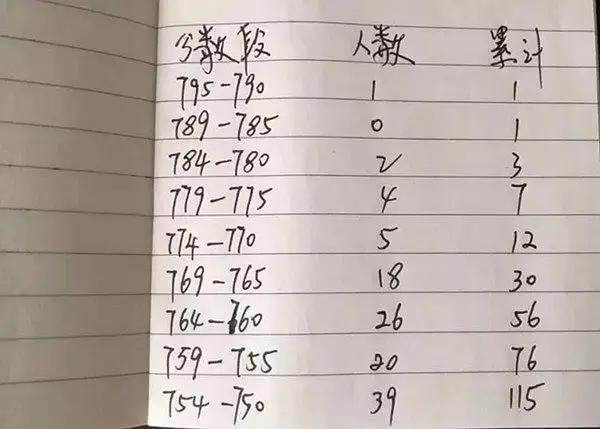 分数段 人数 累计
795-790 1 1
789-785 0 1
784-780 2 3
779-775 4 7
774-770 5 12
769-765 18 30
764-760 26 56
759-755 20 76
754-750 39 115